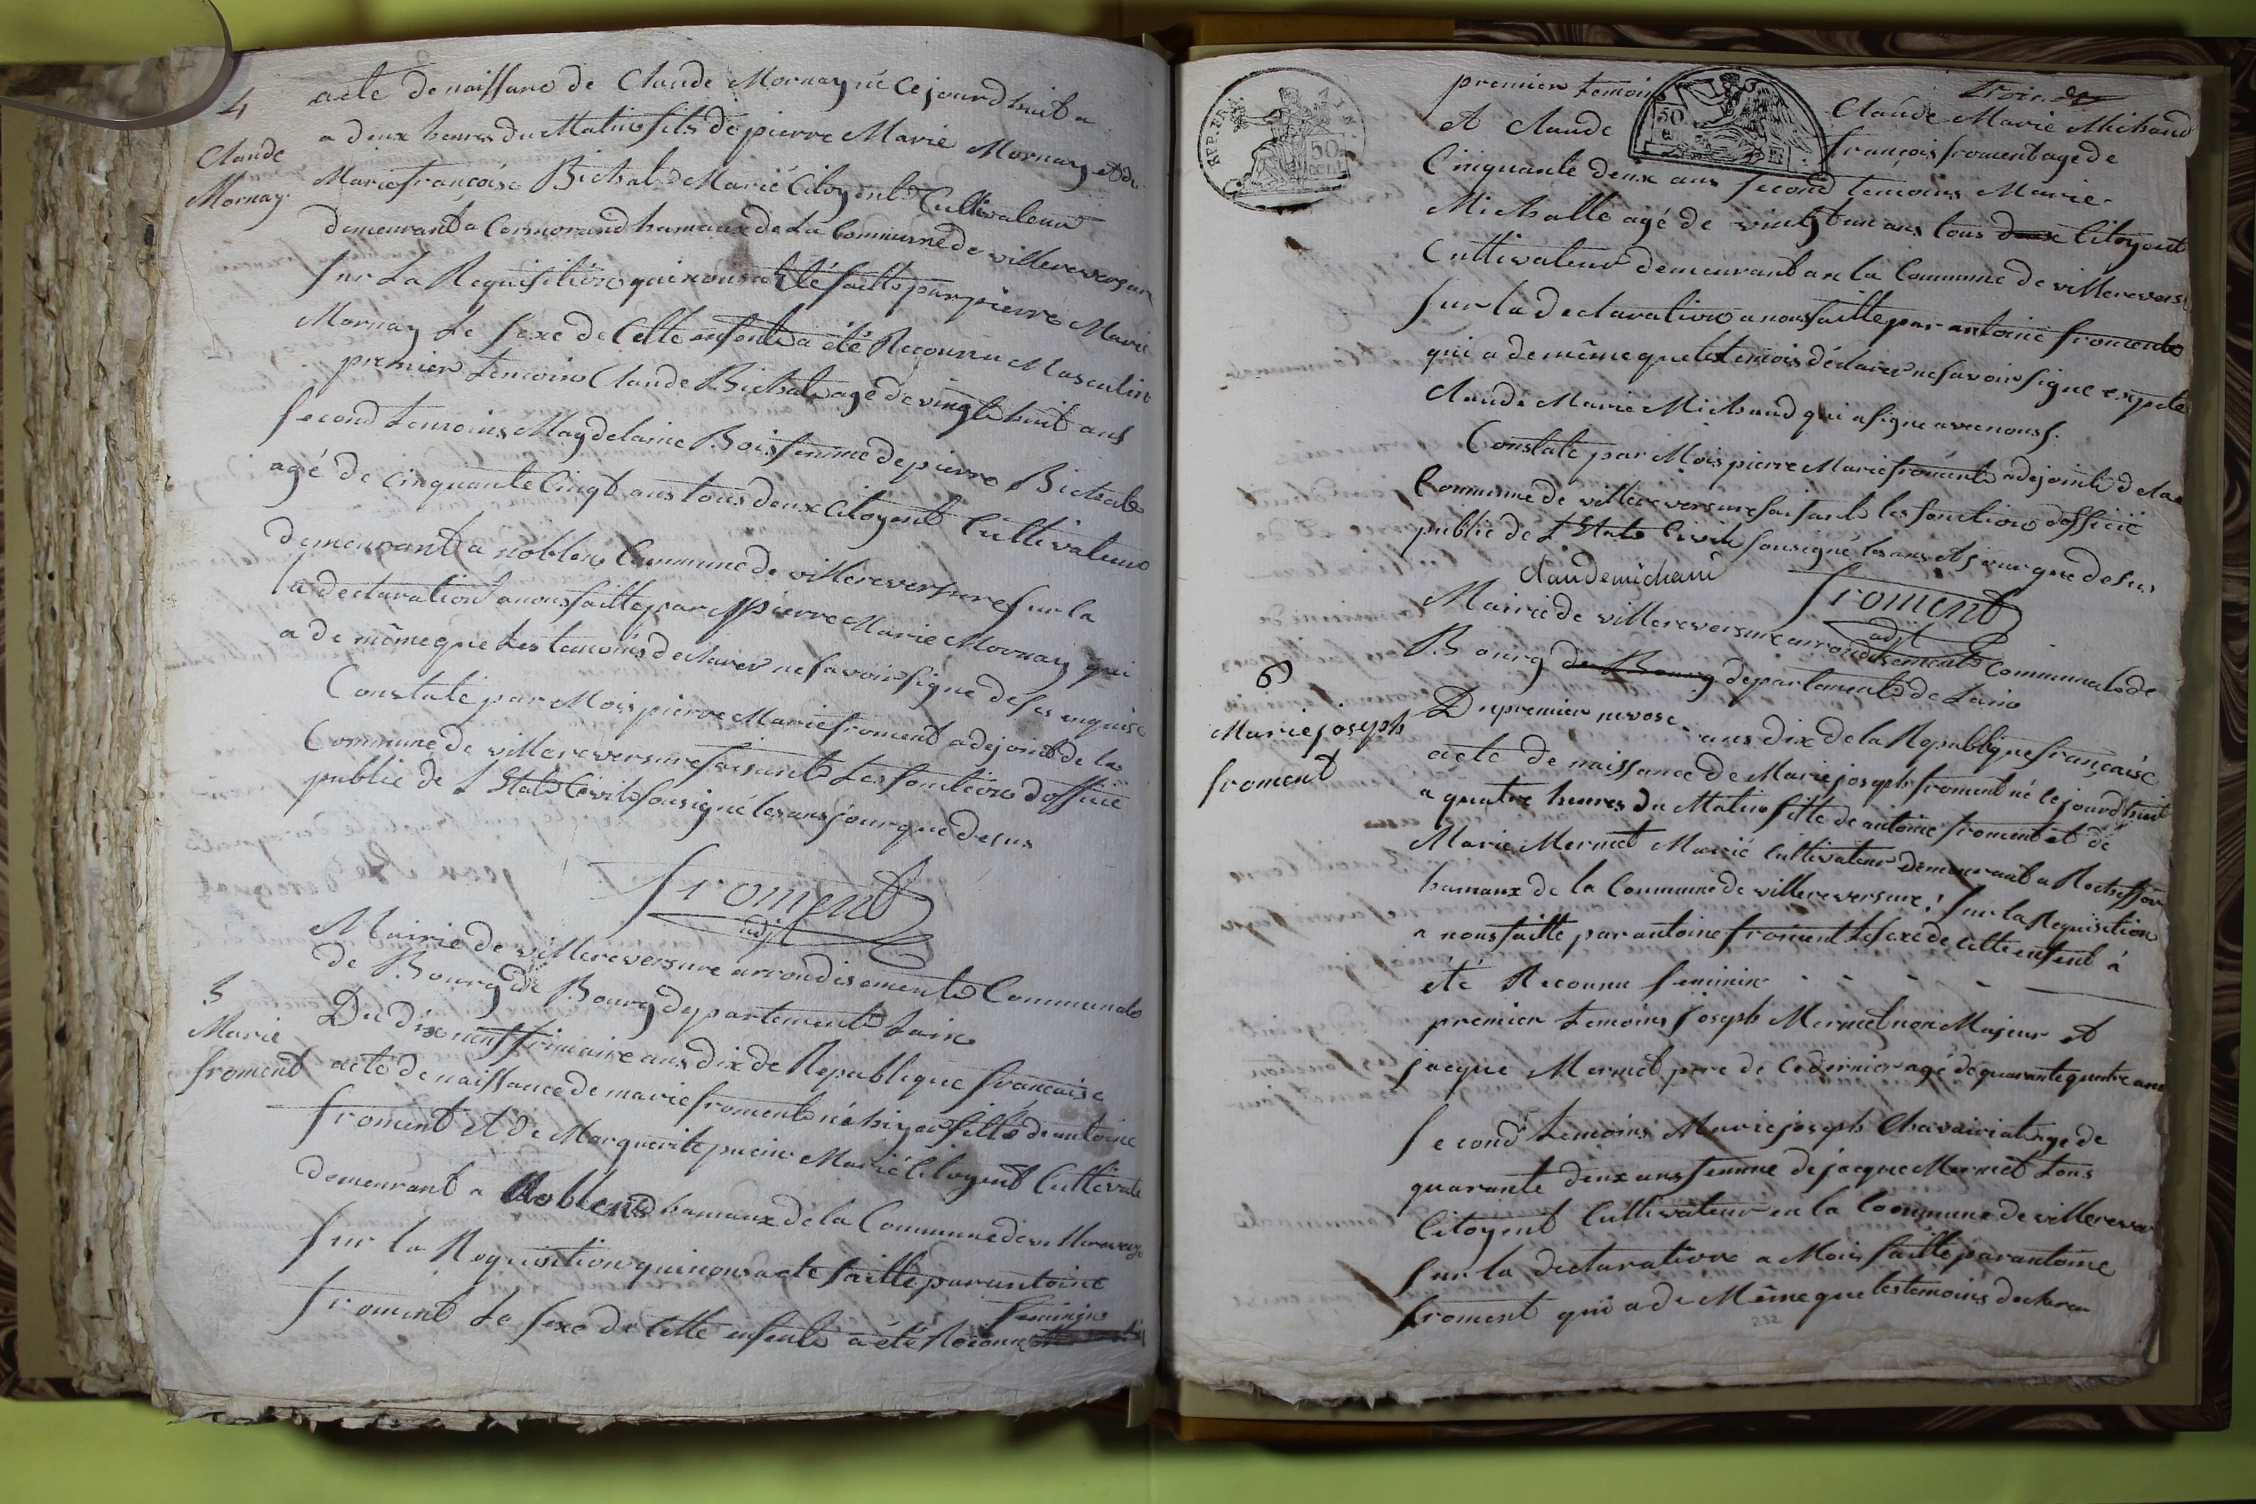 4
Claude
Mornay
acte de naissance de Claude Mornay né Ce jourd huit a
a deux heures du Matin fils de pierre Marie Mornay et de
Marie françoise Bichat Marié Citoyent Cultivateur
demeurant a Cormorand hameaux de La Commune de villereversure
sur La Requisition qui nous a été faitte par pierre Marie
Mornay Le sexe de Cette enfent a été Reconnu Masculin
premier temoins Claude Bichat agé de vingt huit ans
second temoins Magdelaine Bois femme de pierre Bichat
agé de cinquante Cinqt ans tous deux Citoyent Cultivateur
demeurant a noblens Commune de villereversure sur la
declaration a nous faitte par pierre Marie Mornay qui
a de même que Les temoins declarer ne savoir signe de ses enquise
Constaté par Mois pierre Marie froment adejoint de la
Commune de villereversure faisant Les fontion d officié
public de L Etat Civil sousigné les ans jour que desus
froment
adjt
Mairie de villereversure arrondisement Communal
de Bourg de Bourg departement Lain
5
Marie
froment
Du dix neuf frimaire ans dix de Republique francaise
acte de naissance de marie froment né hiyer fille de antoine
froment et de Marguerite Marié Citoyent Cultivate
demeurant a Noblens hameaux de la Commune de villerevers
sur la Requisition qui nous a ete faitte par antoine
froment Le sexe de Cette enfent a été Reconnu feminin
premier temoins Claude Marie Michaud
et Claude françois froment age de
Cinquante deux ans second temoins Marie
Michalle agé de vingt un ans tous deux Citoyent
Cultivateur demeurant en la Commune de villerevers
sur la declaration a nous faitte par antoine froment
qui a de même que les temois déclarer ne savoir signe
Claude Marie Michaud qui a signe avec nous.
Constate par Mois pierre Marie froment adejoint de la
Commune de villereversure faisant les fonction d officié
public de L Etat Civil sousigné les ans et jour que desus
Claude michaud
froment
adjt
Mairie de villereversure arrondisement Communal de
Bourg de Bourg departement de Lain
6
Marie joseph
froment
Du premier nivose ans dix de la Republique françaisé
acte de naissance de Marie joseph froment né ce jourd huit
a quatre heures du Matin fille de antoine froment et de
Marie Mermet Marié Cultivateur demeurant a Rochefor
hameaux de la Commune de villereversure, sur la Requisition
a nous faitte par antoine froment Le sexe de cette enfent a
été Reconnu feminin
premier temoins joseph Mermet non Majeur et
jacque Mermet pere de Ce dernier agé de quarante quatre ans
second temoins Marie joseph Chavairiat age de
quarante deux ans femme de jacque Mermet tous
Citoyent Cultivateur en la Commune de villerever
sur la declaration a Mois faitte par antoine
froment qui a de Même que les temoins declarer
232